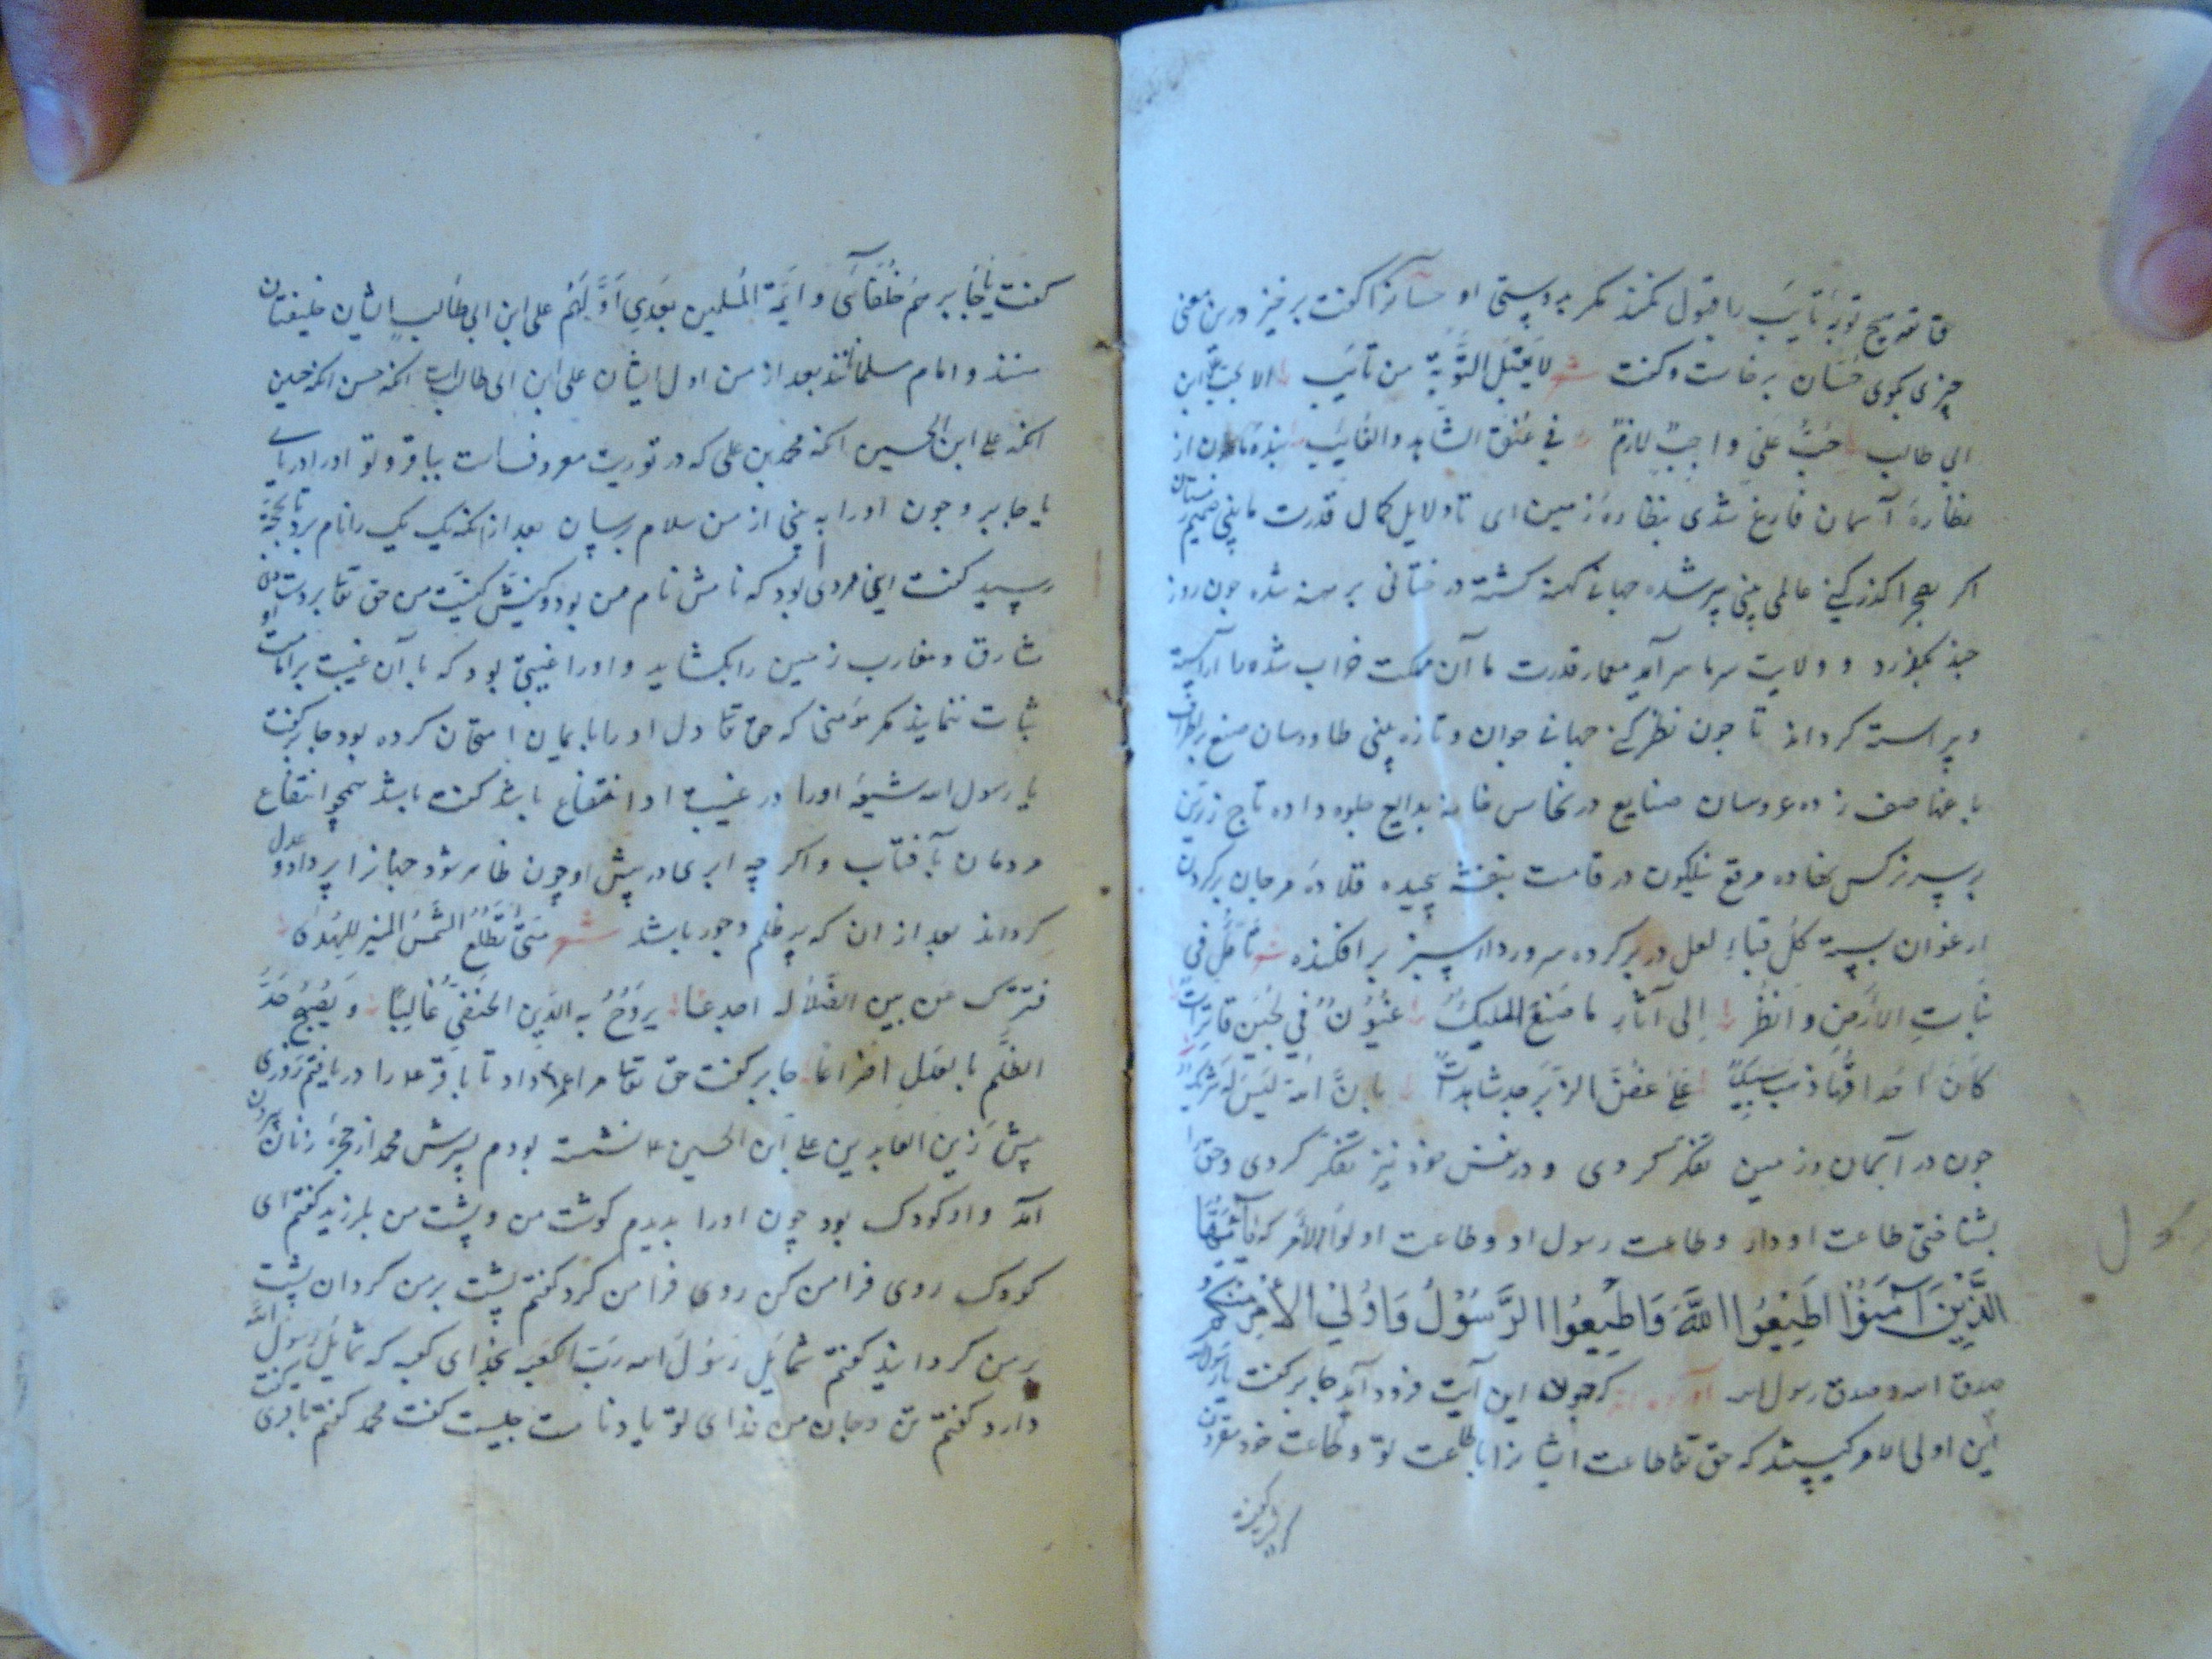 تعالی هیچ توبه تایب را قبول نکند مکر بدوستی او حسانرا کفت برخیز و درین معنی
چیزی بکوی حسان برخاست و کفت شعر لا یقبل التوبة من تائب الا بحب علی ابن
ابی طالب حب علی واجب لازم فی عنق الشاهد والغائب بنده مومن از
نظاره آسمان فارغ شدی بنظاره زمین ای تا دلایل کمال قدرت ما بینی
اکر بصحرا کذر کنی عالمی بینی پر شده جهانی کهنه کشته درختانی برهنه شده چون روز
چند بکذرد و ولایت سرما سر آید معمار قدرت ما آن مملکت خراب شده را آراسته
و پیراسته کرداند تا چون نظر کنی جهانی جوان و تازه بینی طاوسان صنع
با عنا صف زده عروسان صنایع در نخاس خانه بدایع جلوه داده تاج زرین
بر سر نرکس نهاده مرقع نیلکون در قامت بنفشه پیچیده قلاده مرجان بر کردن
ارغوان بسته کل قباء لعل در بر کرده سرو رداء سبز بر افکنده شعر تأمل فی
نبات الارض وانظر الی آثار ما صنع الملیک عیون فی لجین فاترات
کأن احداقها ذهب سبیک علی غصن الزبرجد شاهدات بان الله لیس له شریک
چون در آسمان و زمین تفکر کردی و در نفس خود نیز تفکر کردی و حق را
بشناختی طاعت او دار و طاعت رسول او و طاعت اولو الامر که یا ایها
الَّذِینَ آمَنُوْا اَطِیْعُوا اللَّهَ وَ اَطِیْعُوا الرَّسُوْلَ وَ اُوْلِی الاَمْرِ مِنْکُمْ
صدق الله و صدق رسول الله آورده اند که چون این آیت فرود آمد جابر کفت یا رسول الله
این اولی الامر کیستند که حق تعالی طاعت ایشانرا با طاعت تو و طاعت خود مقرون
کفت یا جابر هم خلفائی و ایمة المسلمین بعدی اولهم علی ابن ابی طالب ایشان خلیفتان
منند و امام مسلمانند بعد از من اول ایشان علی ابن ابی طالب است انکه حسن انکه حسین
انکه علی ابن الحسین انکه محمد بن علی که در توریت معروفست بباقر و تو او را دریابی
یا جابر و چون او را ببینی از من سلام برسان بعد از انکه یک یک را نام برد تا بحجة
رسید کفت اینجا مردی بود که نامش نام من بود و کنیتش کنیت من حق تعالی بر دست او
مشارق و مغارب زمین را بکشاید و او را غیبتی بود که با آن غیبت بر امامت
ثبات ننماید مکر مؤمنی که حق تعالی دل او را بایمان امتحان کرده بود جابر کفت
یا رسول الله شیعه او را در غیبت او انتفاع باشد کفت باشد همچو انتفاع
مردمان بآفتاب و اکر چه ابری در پیش او چون ظاهر شود جهانرا پر داد و عدل
کرداند بعد از ان که پر ظلم و جور باشد شعر متی تطلع الشمس المنیر للهدی
فتترک عن بین الضلالة یروح به الدین الحنفی غالبا و یصبح
الظلم بالعدل جابر کفت حق تعالی مرا عمر داد تا باقر را دریافتم روزی
پیش زین العابدین علی ابن الحسین نشسته بودم پسرش محمد از حجره زنان بیرون
آمد و او کودک بود چون او را بدیدم کوشت من و پشت من بلرزید کفتم ای
کودک روی فرا من کن روی فرا من کرد کفتم پشت بر من کردان پشت
بر من کردانید کفتم شمایل رسول الله رب الکعبه بخدای کعبه که شمایل رسول الله
دارد کفتم تن و جان من فدای تو باد نامت چیست کفت محمد کفتم باقری